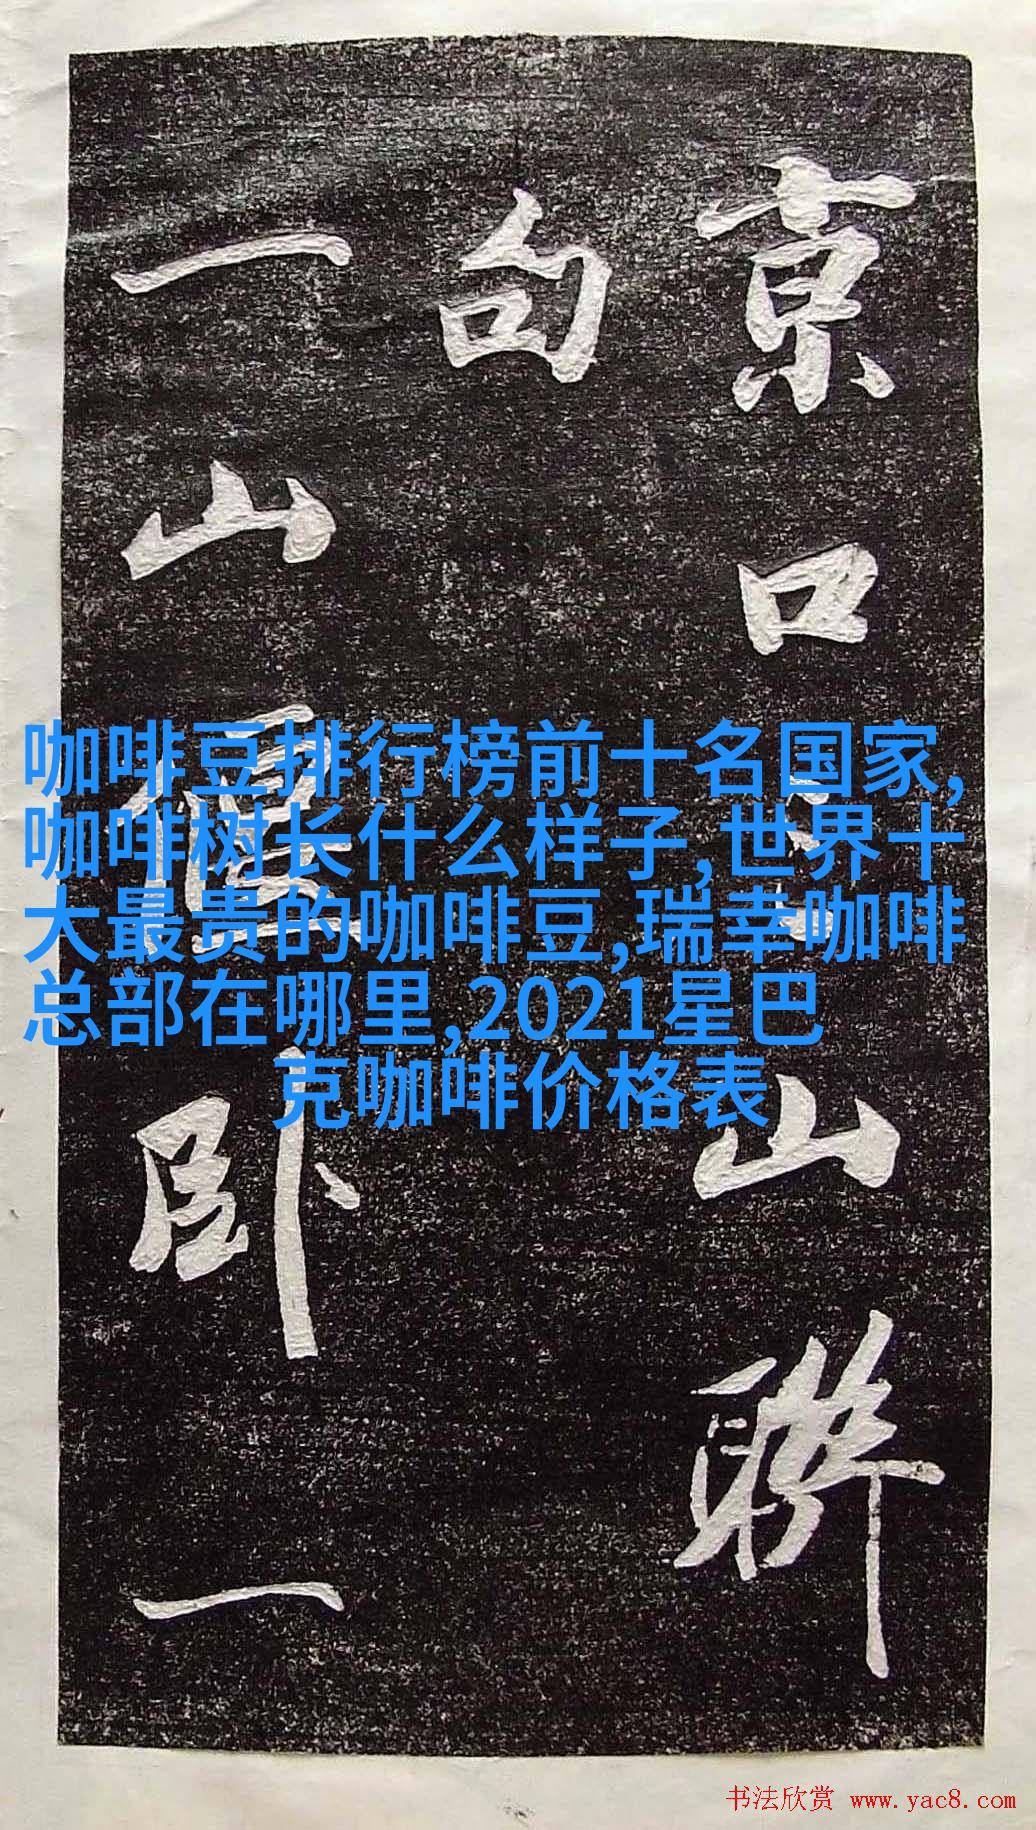 京口三山聯
句
一山偃卧一
咖啡豆排行榜前十名国家,
咖啡树长什么样子,世界十
大最贵的咖啡豆,瑞幸咖啡
总部在哪里,2021星巴
克咖啡价格表
书法欣赏 www.yac8.com